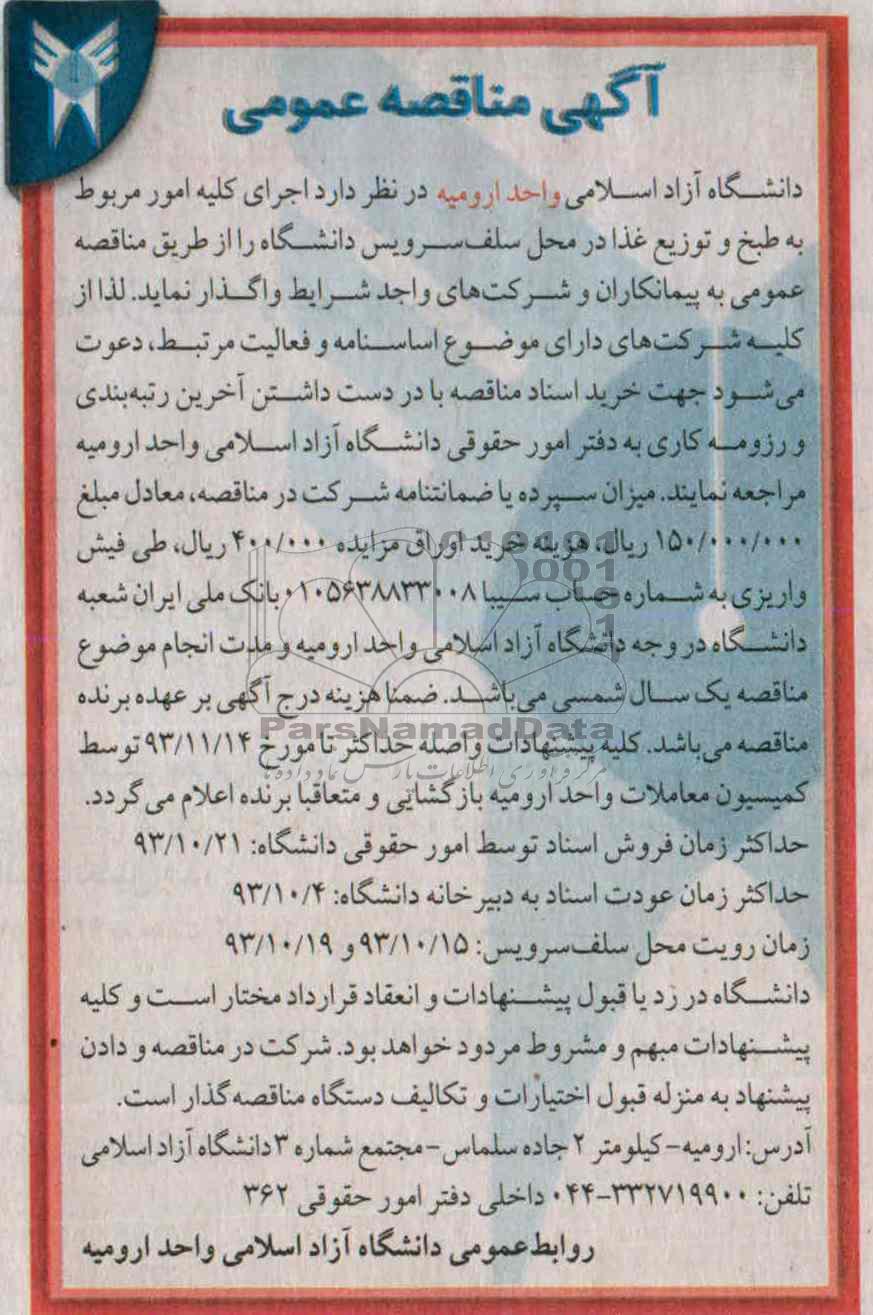 آگهی مناقصه عمومی
دانشگاه آزاد اسلامی واحد ارومیه در نظر دارد اجرای کلیه امور مربوط
به طبخ و توزیع غذا در محل سلف‌سرویس دانشگاه را از طریق مناقصه
عمومی به پیمانکاران و شرکت‌های واجد شرایط واگذار نماید. لذا از
کلیه شرکت‌های دارای موضوع اساسنامه و فعالیت مرتبط، دعوت
می‌شود جهت خرید اسناد مناقصه با در دست داشتن آخرین رتبه‌بندی
و رزومه کاری به دفتر امور حقوقی دانشگاه آزاد اسلامی واحد ارومیه
مراجعه نمایند. میزان سپرده یا ضمانتنامه شرکت در مناقصه، معادل مبلغ
۱۵۰/۰۰۰/۰۰۰ ریال، هزینه خرید اوراق مزایده ۴۰۰/۰۰۰ ریال، طی فیش
واریزی به شماره حساب سیبا ۰۱۰۵۶۳۸۸۳۳۰۰۸ بانک ملی ایران شعبه
دانشگاه در وجه دانشگاه آزاد اسلامی واحد ارومیه و مدت انجام موضوع
مناقصه یک سال شمسی می‌باشد. ضمنا هزینه درج آگهی بر عهده برنده
مناقصه می‌باشد. کلیه پیشنهادات واصله حداکثر تا مورخ ۹۳/۱۱/۱۴ توسط
کمیسیون معاملات واحد ارومیه بازگشائی و متعاقبا برنده اعلام می‌گردد.
حداکثر زمان فروش اسناد توسط امور حقوقی دانشگاه: ۹۳/۱۰/۲۱
حداکثر زمان عودت اسناد به دبیرخانه دانشگاه: ۹۳/۱۰/۴
زمان رویت محل سلف‌سرویس: ۹۳/۱۰/۱۵ و ۹۳/۱۰/۱۹
دانشگاه در رد یا قبول پیشنهادات و انعقاد قرارداد مختار است و کلیه
پیشنهادات مبهم و مشروط مردود خواهد بود. شرکت در مناقصه و دادن
پیشنهاد به منزله قبول اختیارات و تکالیف دستگاه مناقصه‌گذار است.
آدرس: ارومیه-کیلومتر ۲ جاده سلماس-مجتمع شماره ۳ دانشگاه آزاد اسلامی
تلفن: ۳۳۲۷۱۹۹۰۰-۰۴۴ داخلی دفتر امور حقوقی ۳۶۲
روابط‌عمومی دانشگاه آزاد اسلامی واحد ارومیه
ParsNamadData